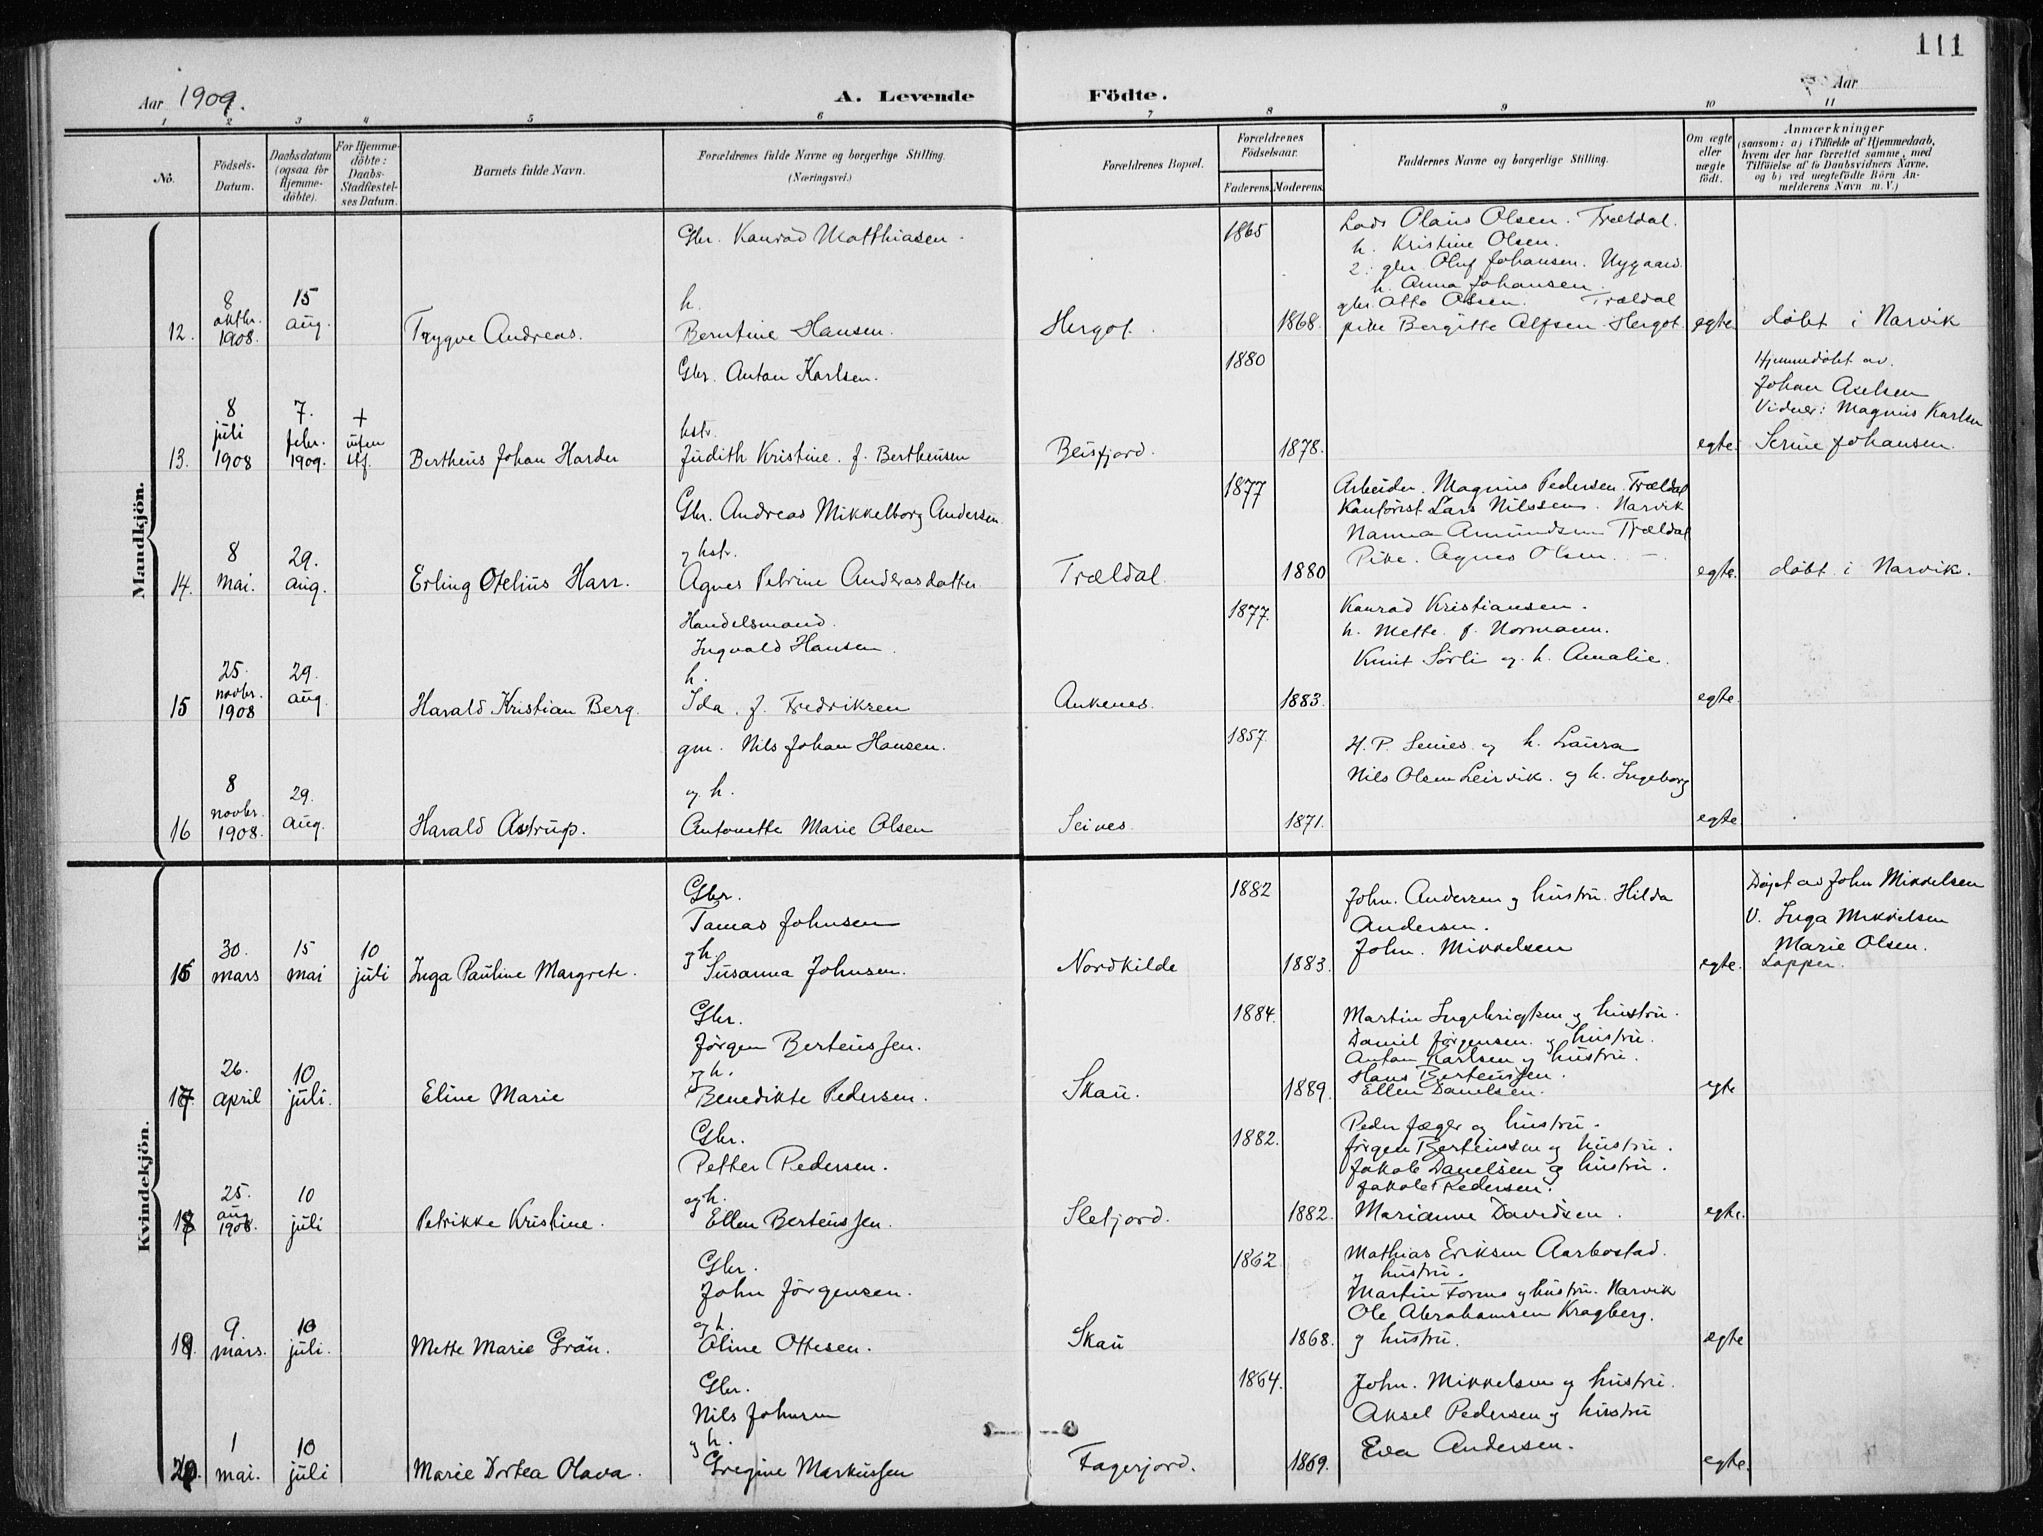 111
Aar 1909.
A. Levende Födte.
Aar
1 2 3 4 5 6 7 8 9 10 11
No.
Födsels-Datum.
Daabsdatum (ogsaa for Hjemme-döbte).
For Hjemme-döbte: Daabs-Stadfæstel-ses Datum.
Barnets fulde Navn.
Forældrenes fulde Navne og borgerlige Stilling.
(Næringsvei.)
Forældrenes Bopæl.
Forældrenes Födselsaar.
Faderens. Moderens.
Faddernes Navne og borgerlige Stilling.
Om ægte eller uægte födt.
Anmærkninger
(saasom: a) i Tilfælde af Hjemmedaab,
hvem der har forrettet samme, med
Tilföielse af to Daabsvidners Navne,
og b) ved uægtefödte Börn An-
melderens Navn m. V.)
Mandkjön.
12. 8 oktbr. 1908. 15 aug. Trygve Andreas.
Gbr. Konrad Matthiasen.
h.
Berntine Hansen.
Hergot. 1865 1868.
Lods Olaus Olsen. Trældal.
h. Kristine Olsen.
2. gbr Oluf Johansen. Nygaard.
h. Anna Johansen.
gbr. Otto Olsen. Trældal
pike Bergitte Alfsen Hergot.
egte døbt i Narvik
13. 8 juli 1908 7. febr. 1909. + uten stf. Bertheus Johan Harder
Gbr. Anton Karlsen.
hstr.
Judith Kristine. f. Bertheusen
Beisfjord. 1880 1878.
egte.
Hjemmedøbt av
Johan Axelsen
Vidner: Magnus Karlsen
Serine Johansen.
14. 8 mai. 29. aug. Erling Otelius Harr.
Gbr. Andreas Mikkelborg Andersen
og hstr.
Agnes Petrine Andreasdatter
Trældal. 1877 1880
Arbeider. Magnus Pedersen. Trældal
Kontorist Lars Nilssen. Narvik
Nanna Amundsen Trældal
Pike. Agnes Olsen. —
egte. døbt i Narvik.
15 25. novbr. 1908 29. aug. Harald Kristian Berg.
Handelsmand.
Ingvald Hansen.
h.
Ida. f. Fredriksen
Ankenes. 1877. 1883.
Konrad Kristiansen.
h. Mette. f. Normann.
Knut Sørli og. h. Amalie.
egte.
16 8 novbr. 1908. 29. aug. Harald Astrup.
gm. Nils Johan Hansen.
og h.
Antonette Marie Olsen
Seines 1857. 1871.
H. P. Seines og h. Laura
Nils Olsen Leirvik. og h. Ingeborg
egte
Kvindekjön.
16 30. mars 15 mai 10 juli Inga Pauline Margrete.
Gbr.
Tomas Johnsen
og h
Susanna Johnsen.
Nordkilde 1882 1883.
John. Andersen og hustru. Hilda
Andersen.
John. Mikkelsen
egte.
Døpt av John Mikkelsen
V. Inga Mikkelsen
Marie Olsen.
Lapper.
17 26. april 10 juli. Eline Marie
Gbr.
Jørgen Berteussen.
og h.
Benedikte Pedersen.
Skau. 1884. 1889.
Martin Ingebrigtsen og hustru.
Daniel Jørgensen. og hustru.
Anton Karlsen og hustru.
Hans Berteussen.
Ellen Danielsen.
egte
18 25. aug 1908. 10 juli Petrikke Kristine.
Gbr.
Petter Pedersen.
og h.
Ellen Berteussen.
Sletjord. 1882. 1882.
Peder Jæger og hustru.
Jørgen Berteussen og hustru.
Jakob Danielsen og hustru.
Jakob Pedersen.
Marianne Davidsen.
egte.
19 9 mars. 10 juli. Mette Marie Grön.
Gbr.
John Jørgensen.
og h.
Oline Ottesen.
Skau 1862 1868.
Mathias Eriksen Aarbostad.
og hustru.
Martin Forens og hustru. Narvik
Ole Abrahamsen Kragberg.
og hustru.
ægte
20. 1 mai. 10 juli Marie Dortea Olava.
Gbr.
Nils Johnsen
og h.
Gregine Markussen
Fagerjord. 1864. 1869.
John. Mikkelsen og hustru.
Aksel Pedersen og hustru
Eva Andersen.
egte.